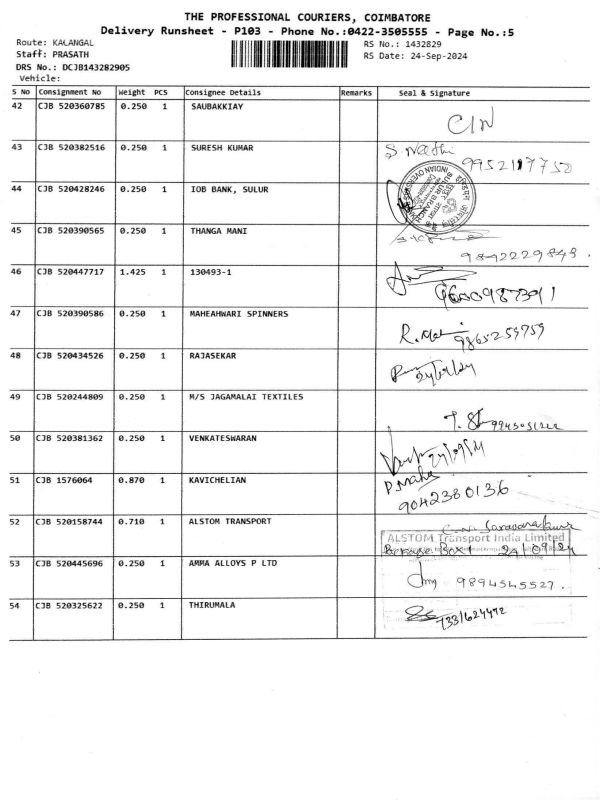 THE PROFESSIONAL COURIERS, COIMBATORE
Delivery Runsheet - P103 - Phone No.:0422-3505555 - Page No.:5
Route: KALANGAL
RS No.: 1432829
Staff: PRASATH
RS Date: 24-Sep-2024
DRS No.: DCJB143282905
Vehicle:
S No Consignment No Weight PCS Consignee Details Remarks Seal & Signature
42 CJB 520360785 0.250 1 SAUBAKKIAY
43 CJB 520382516 0.250 1 SURESH KUMAR
9952117752
44 CJB 520428246 0.250 1 IOB BANK, SULUR
45 CJB 520390565 0.250 1 THANGA MANI
9842229848.
46 CJB 520447717 1.425 1 130493-1
9600987391
47 CJB 520390586 0.250 1 MAHEAHWARI SPINNERS
R. 9865259759
48 CJB 520434526 0.250 1 RAJASEKAR
24/09/24
49 CJB 520244809 0.250 1 M/S JAGAMALAI TEXTILES
50 CJB 520381362 0.250 1 VENKATESWARAN
24/09/24
51 CJB 1576064 0.870 1 KAVICHELIAN
P.Maha
9042380136
52 CJB 520158744 0.710 1 ALSTOM TRANSPORT
ALSTOM Transport India Limited
24/09/24
53 CJB 520445696 0.250 1 AMMA ALLOYS P LTD
9894545527.
54 CJB 520325622 0.250 1 THIRUMALA
7331624472